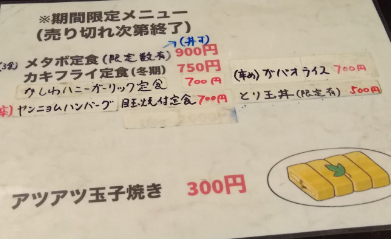 ※期間限定メニュー
(売り切れ次第終了)
メタボ定食(限定数有)900円
カキフライ定食(冬期) 750円
かしわハニーガーリック定食 700円
(辛め)ガパオライス 700円
ヤンニョムハンバーグ 目玉焼付定食 700円
とり玉丼(限定有) 500円
アツアツ玉子焼き 300円